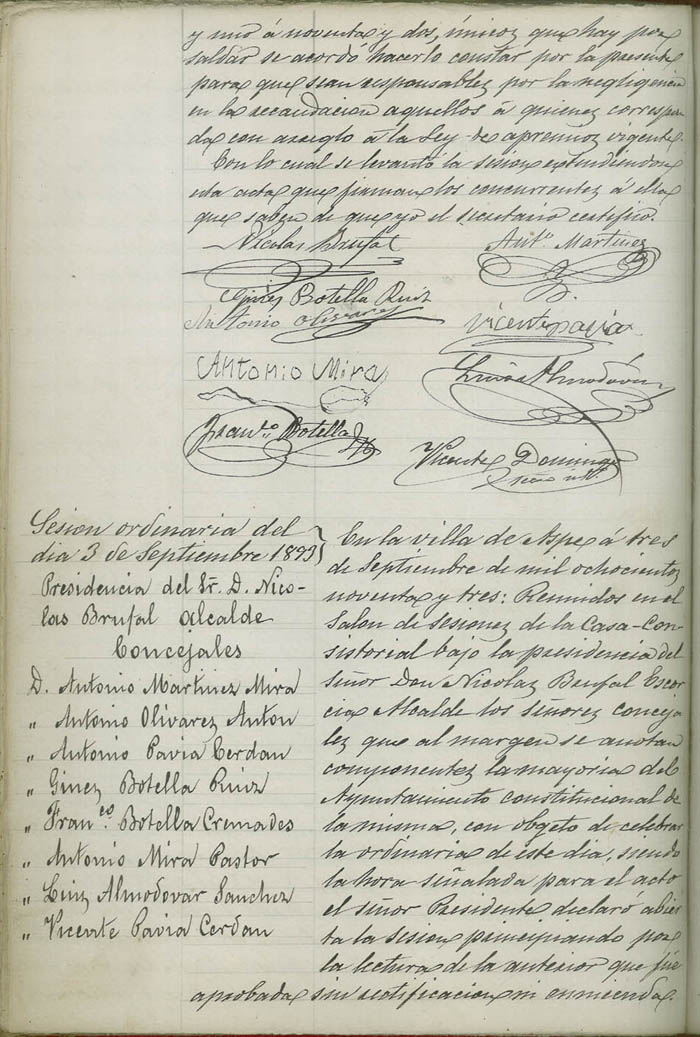 y uno á noventa y dos, únicos que hay por
saldar se acordó hacerlo constar por la presente
para que sean responsables por la negligencia
en la recaudacion aquellos á quienes correspon
da con arreglo á la Ley de apremios vigente.
Con lo cual se levantó la sesion extendiendose
esta acta que firman los concurrentes á ella
que saben de que yo el secretario certifico.
Nicolas Brufal
Antº Martinez
Gines Botella Ruiz
Antonio Olivares
Vicente Pavia
Antonio Mira
Luis Almodóvar
Franco Botella
Vicente Domingo
Sesion ordinaria del
dia 3 de Septiembre 1893
Presidencia del Sr. D. Nico-
las Brufal alcalde
Concejales
D. Antonio Martinez Mira
„ Antonio Olivarez Anton
„ Antonio Pavia Cerdan
„ Ginez Botella Ruiz
„ Franco. Botella Cremades
„ Antonio Mira Pastor
„ Luiz Almodovar Sanchez
„ Vicente Pavia Cerdan
En la villa de Aspe á tres
de Septiembre de mil ochocientos
noventa y tres: Reunidos en el
Salon de Sesiones de la Casa-Con-
sistorial bajo la presidencia del
señor Don Nicolas Brufal Escor
cia Alcalde los señores conceja
les que al margen se anotan
componentes la mayoria del
Ayuntamiento constitucional de
la misma, con objeto de celebrar
la ordinaria de este dia, siendo
la hora señalada para el acto
el señor Presidente declaró abier
ta la sesion principiando por
la lectura de la anterior que fué
aprobada sin rectificacion ni enmienda.